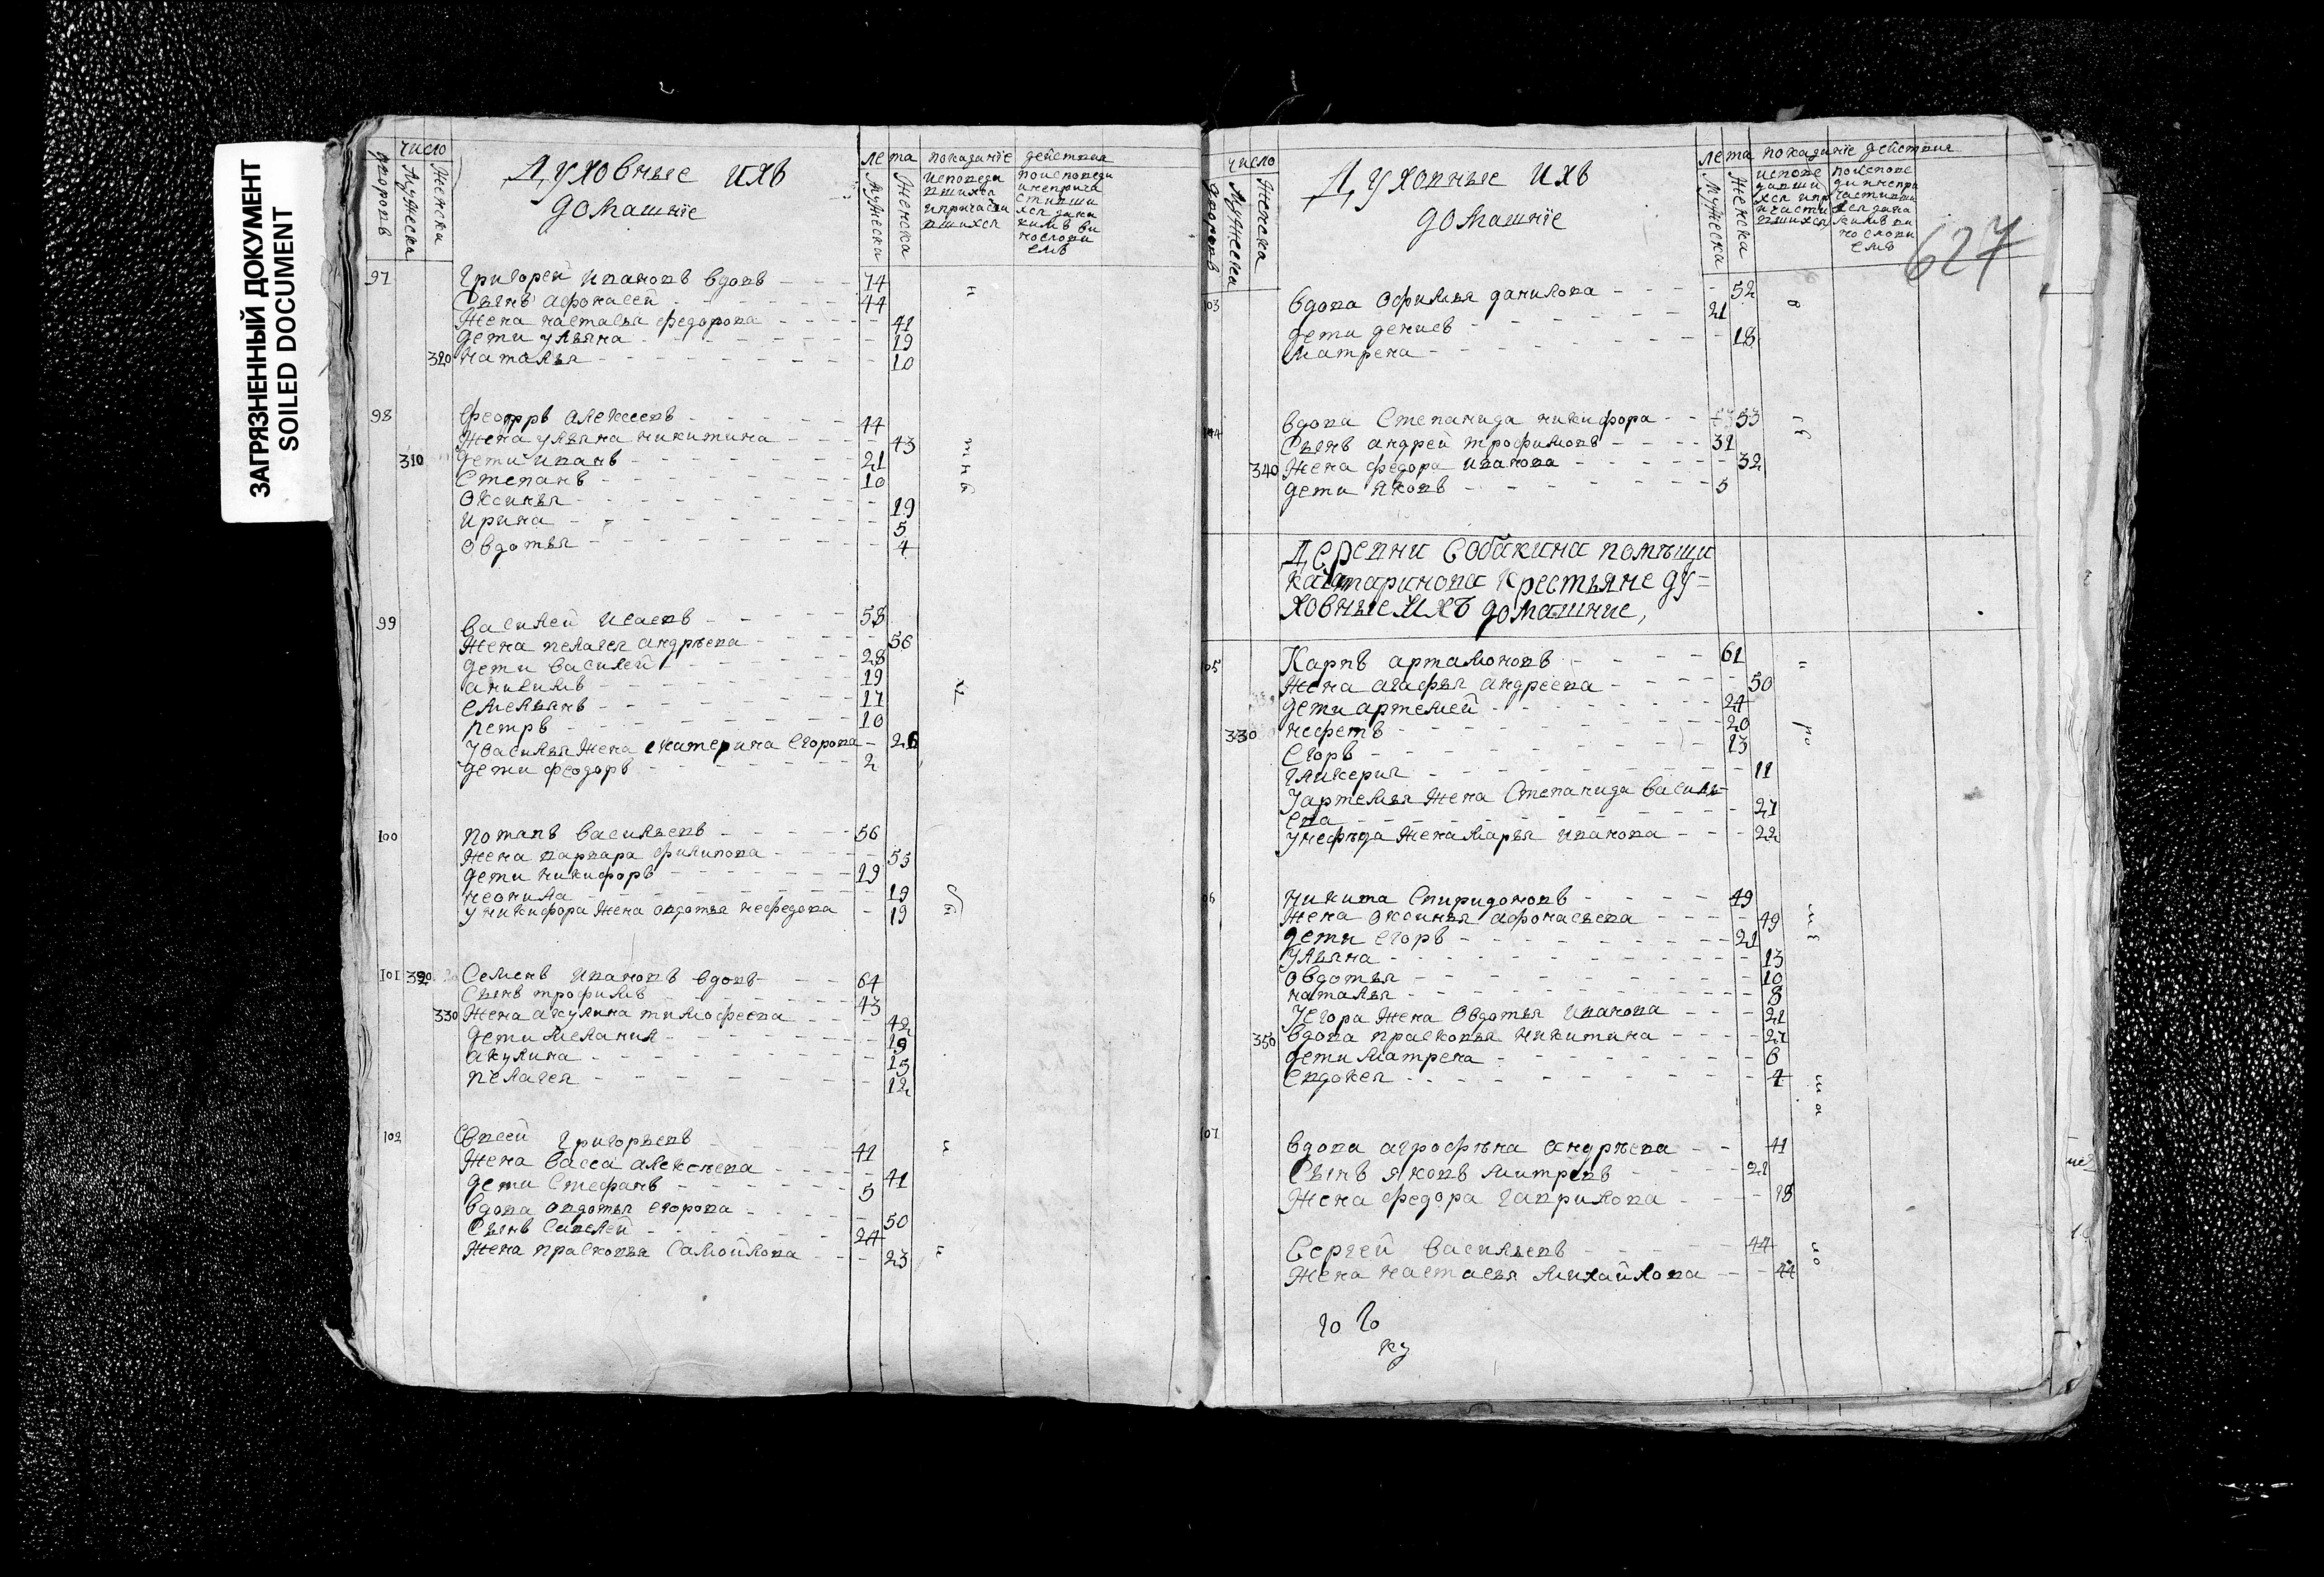 ЗАГРЯЗНЕННЫЙ ДОКУМЕНТ
SOILED DOCUMENT
число
дворовъ
Мужеска
Женска
Духовные ихъ
домашнïе
лета
Мужеска
Женска
показанïе действия
97 Григорей Ивановъ вдовъ 74
Сынъ Афонасей 44
Жена настасья федорова 41
дети ульяна 19
320 наталья 10
98 Феодръ Алексеевъ 44
Жена ульяна никитина 43
310 дети иванъ 21
Степанъ 10
Оксинья 19
ирина 5
Овдотья 4
99 Василей Исаевъ 58
Жена пелагея андрѣева 56
дети Василей 28
аникимъ 19
емельянъ 17
петръ 10
У Василья Жена екатерина Егорова 26
дети феодоръ 2
100 потапъ Васильевъ 56
Жена варвара филипова 55
дети никифоръ 19
неонила 19
у никифора Жена овдотья нефедова 19
101 320 Семенъ ивановъ вдовъ 64
Сынъ трофимъ 43
330 Жена акулина тимофеева 42
дети Мелания 19
акулина 15
пелагея 12
102 Григорьевъ 41
Жена Васса алексѣева 41
дети Стефанъ 5
вдова овдотья егорова 50
Сынъ Савелей 24
Жена прасковья Самойлова 23
число
дворовъ
Мужеска
Женска
Духовные ихъ
домашнïе
лета
Мужеска
Женска
показанïе действия
627
103 вдова Офимья данилова 52
дети денисъ 21
Матрена 18
104 вдова Степанида никифора 53
Сынъ андрей трофимовъ 31
340 Жена федора иванова 32
дети яковъ 5
Деревни Собакина помѣщи
ка крестьяне ду=
ховные ихъ домашние,
105 Карпъ артамоновъ 61
Жена агафья андреева 50
дети артемей 24
330 нефетъ 20
Егоръ 13
гликерия 11
У артемья Жена Степанида Василь
ева 27
у нефѣда Жена Марья иванова 22
06 никита Спиридоновъ 49
Жена оксинья афонасьева 49
дети егоръ 21
ульяна 13
Овдотья 10
наталья 8
У егора Жена Овдотья иванова 21
350 вдова прасковья никитина 27
дети Матрена 6
Евдокея 4
107 вдова агрофѣна андрѣева 41
Сынъ яковъ Митревъ 21
Жена федора гаврилова 18
Сергей Васильевъ 44
Жена настасья Михайлова 44